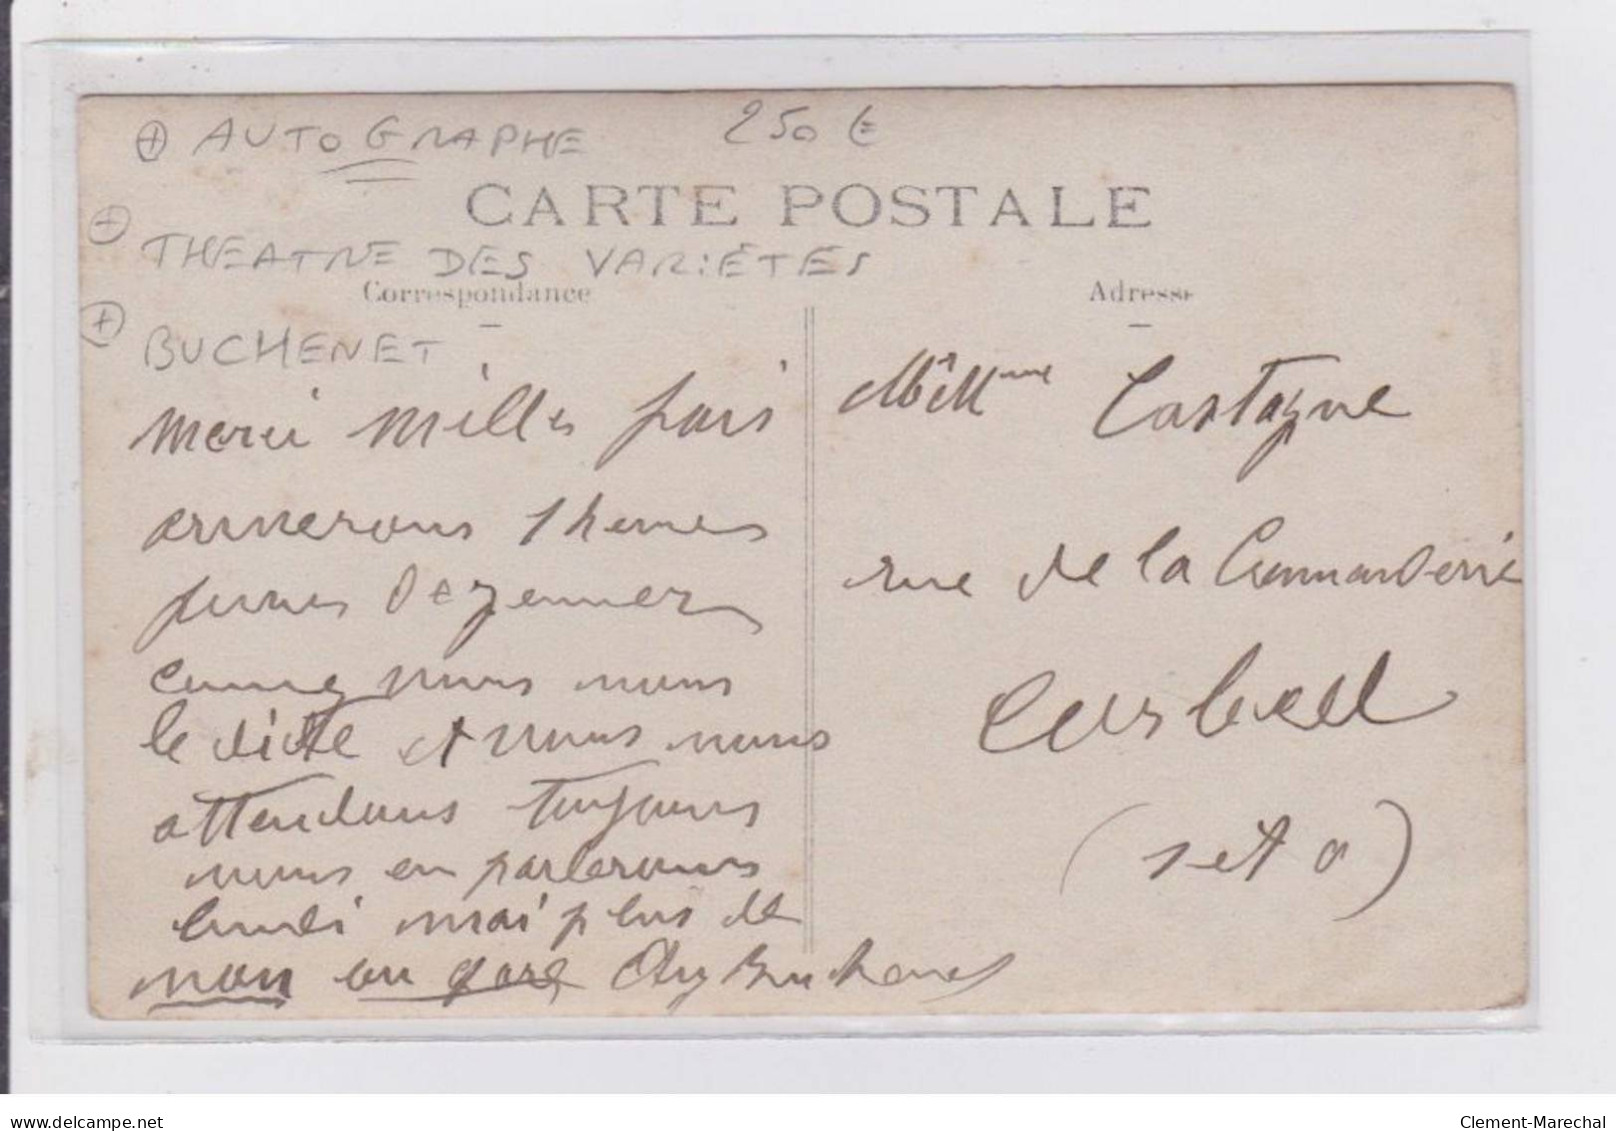 + AUTOGRAPHE 250 €
CARTE POSTALE
+ THEATRE DES VARIÉTÉS
Correspondance
Adresse
+ BUCHENET
Merci milles fois
arriverons 1 heures
le dicte et nous nous
attendons toujours
nous en parlerons
lundi mai plus de
non ou gare Buchenet
M et Mme Castagne
rue de la Commanderie
Corbeil
(S et O)
delcampe.net
Clement-Marechal